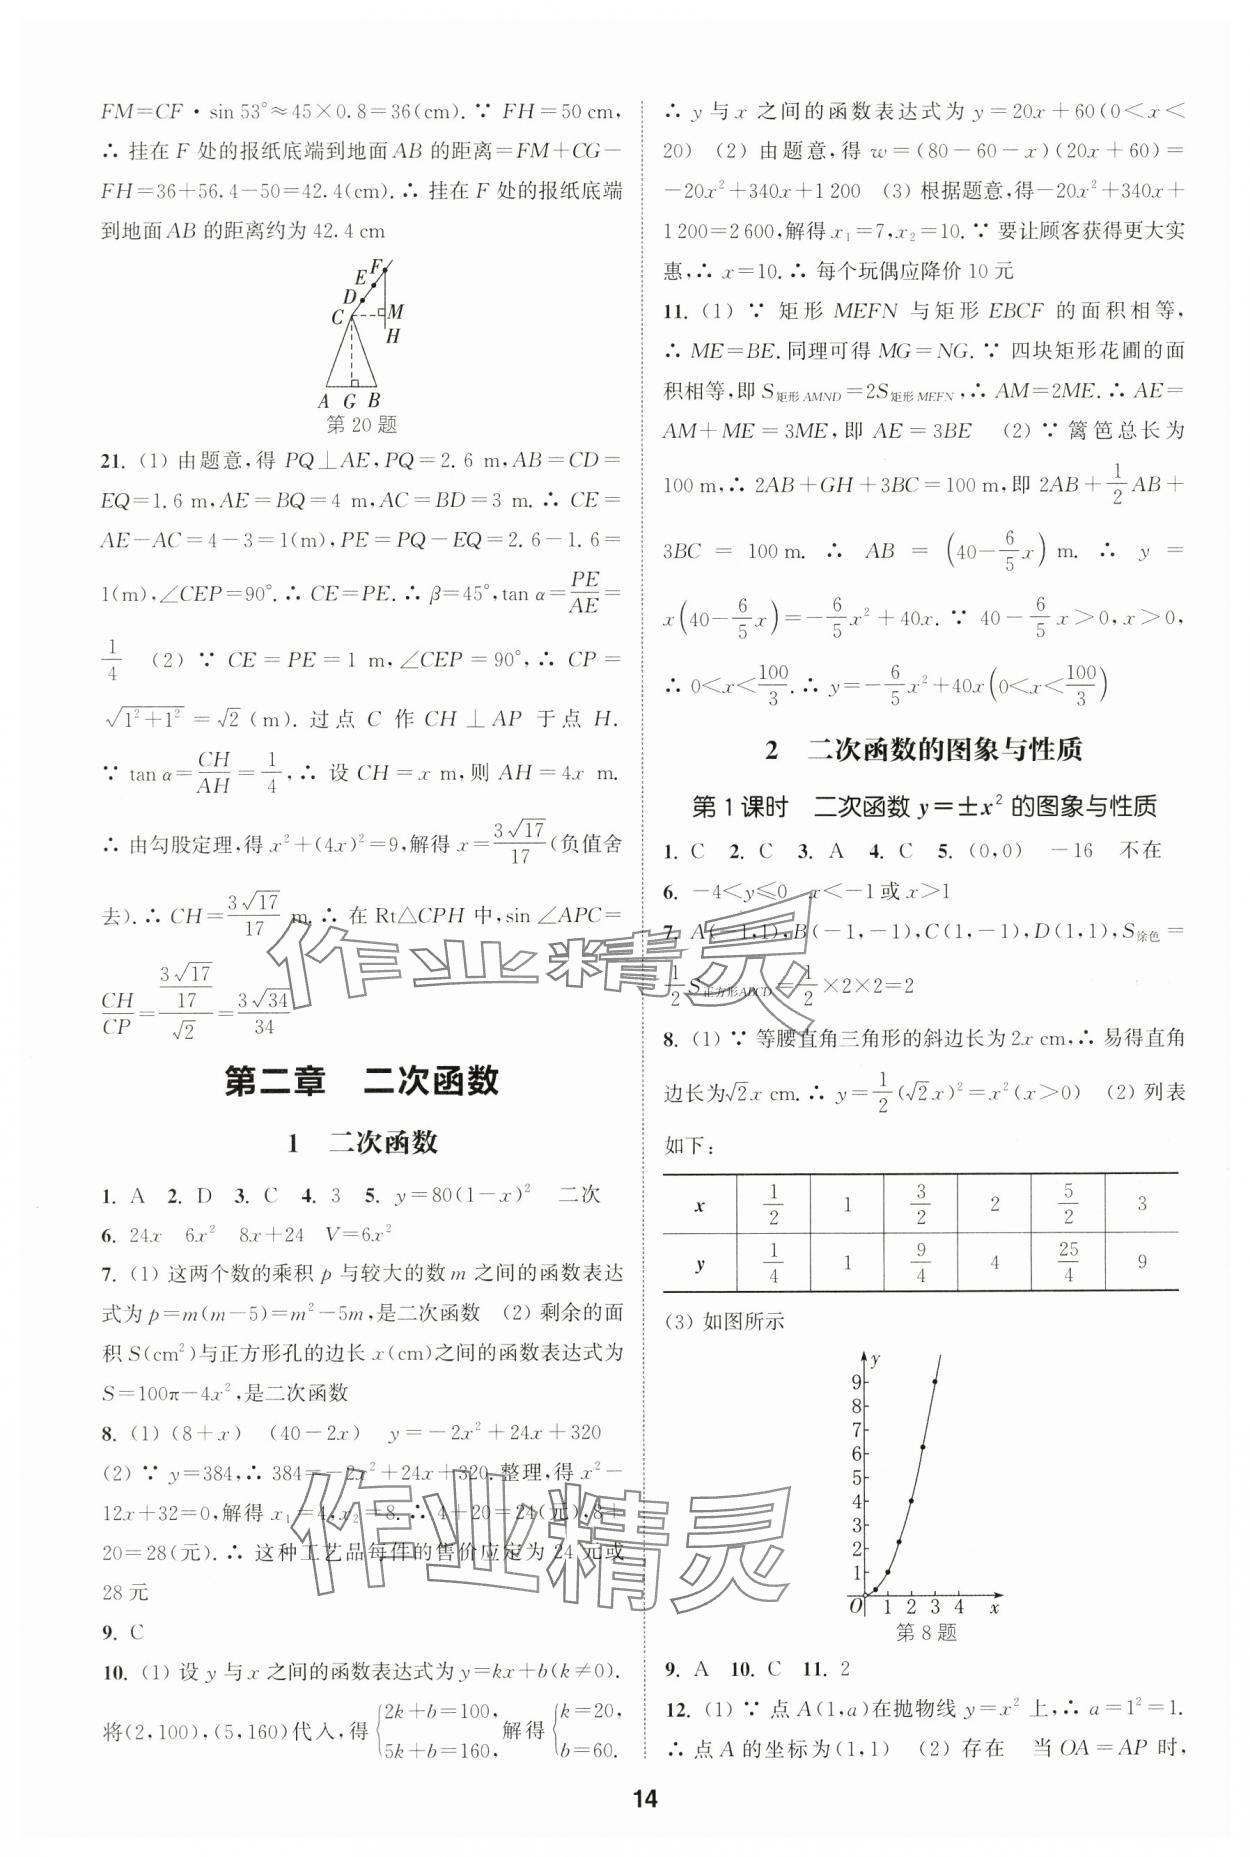 FM=CF·sin 53°≈45×0.8=36(cm).∵ FH=50 cm,
∴ 挂在 F 处的报纸底端到地面 AB 的距离=FM+CG-
FH=36+56.4-50=42.4(cm).∴ 挂在 F 处的报纸底端
到地面 AB 的距离约为 42.4 cm
F
E
D
C
M
H
A G B
第20题
21. (1) 由题意,得 PQ⊥AE,PQ=2.6 m,AB=CD=
EQ=1.6 m,AE=BQ=4 m,AC=BD=3 m.∴ CE=
AE-AC=4-3=1(m),PE=PQ-EQ=2.6-1.6=
1(m),∠CEP=90°.∴ CE=PE.∴ β=45°,tan α=PE/AE=
1/4 (2) ∵ CE=PE=1 m,∠CEP=90°,∴ CP=
√(1²+1²)=√2(m).过点 C 作 CH⊥AP 于点 H.
∵ tan α=CH/AH=1/4,∴ 设 CH=x m,则 AH=4x m.
∴ 由勾股定理,得 x²+(4x)²=9,解得 x=3√17/17(负值舍
去).∴ CH=3√17/17 m.∴ 在 Rt△CPH 中,sin ∠APC=
CH/CP=(3√17/17)/√2=3√34/34
第二章 二次函数
1 二次函数
1. A 2. D 3. C 4. 3 5. y=80(1-x)² 二次
6. 24x 6x² 8x+24 V=6x²
7. (1) 这两个数的乘积 p 与较大的数 m 之间的函数表达
式为 p=m(m-5)=m²-5m,是二次函数 (2) 剩余的面
积 S(cm²)与正方形孔的边长 x(cm)之间的函数表达式为
S=100π-4x²,是二次函数
8. (1) (8+x) (40-2x) y=-2x²+24x+320
(2) ∵ y=384,∴ 384=-2x²+24x+320.整理,得 x²-
12x+32=0,解得 x₁=4,x₂=8.∴ 4+20=24(元),8+
20=28(元).∴ 这种工艺品每件的售价应定为 24 元或
28 元
9. C
10. (1) 设 y 与 x 之间的函数表达式为 y=kx+b(k≠0).
将(2,100),(5,160)代入,得{2k+b=100, 5k+b=160, 解得{k=20, b=60.
∴ y 与 x 之间的函数表达式为 y=20x+60(0<x<
20) (2) 由题意,得 w=(80-60-x)(20x+60)=
-20x²+340x+1 200 (3) 根据题意,得-20x²+340x+
1 200=2 600,解得 x₁=7,x₂=10.∵ 要让顾客获得更大实
惠,∴ x=10.∴ 每个玩偶应降价 10 元
11. (1) ∵ 矩形 MEFN 与矩形 EBCF 的面积相等,
∴ ME=BE.同理可得 MG=NG.∵ 四块矩形花圃的面
积相等,即 S矩形AMND=2S矩形MEFN,∴ AM=2ME.∴ AE=
AM+ME=3ME,即 AE=3BE (2) ∵ 篱笆总长为
100 m,∴ 2AB+GH+3BC=100 m,即 2AB+1/2 AB+
3BC=100 m.∴ AB=(40-6/5 x) m.∴ y=
x(40-6/5 x)=-6/5 x²+40x.∵ 40-6/5 x>0,x>0,
∴ 0<x<100/3.∴ y=-6/5 x²+40x(0<x<100/3)
2 二次函数的图象与性质
第1课时 二次函数 y=±x² 的图象与性质
1. C 2. C 3. A 4. C 5. (0,0) -16 不在
6. -4<y≤0 x<-1或x>1
7. A(-1,1),B(-1,-1),C(1,-1),D(1,1),S涂色=
1/2 S正方形ABCD=1/2×2×2=2
8. (1) ∵ 等腰直角三角形的斜边长为 2x cm,∴ 易得直角
边长为√2x cm.∴ y=1/2(√2x)²=x²(x>0) (2) 列表
如下:
x 1/2 1 3/2 2 5/2 3
y 1/4 1 9/4 4 25/4 9
(3) 如图所示
y
9
8
7
6
5
4
3
2
1
O 1 2 3 4 x
第8题
9. A 10. C 11. 2
12. (1) ∵ 点 A(1,a)在抛物线 y=x² 上,∴ a=1²=1.
∴ 点 A 的坐标为(1,1) (2) 存在 当 OA=AP 时,
14
作业精灵
作业精灵